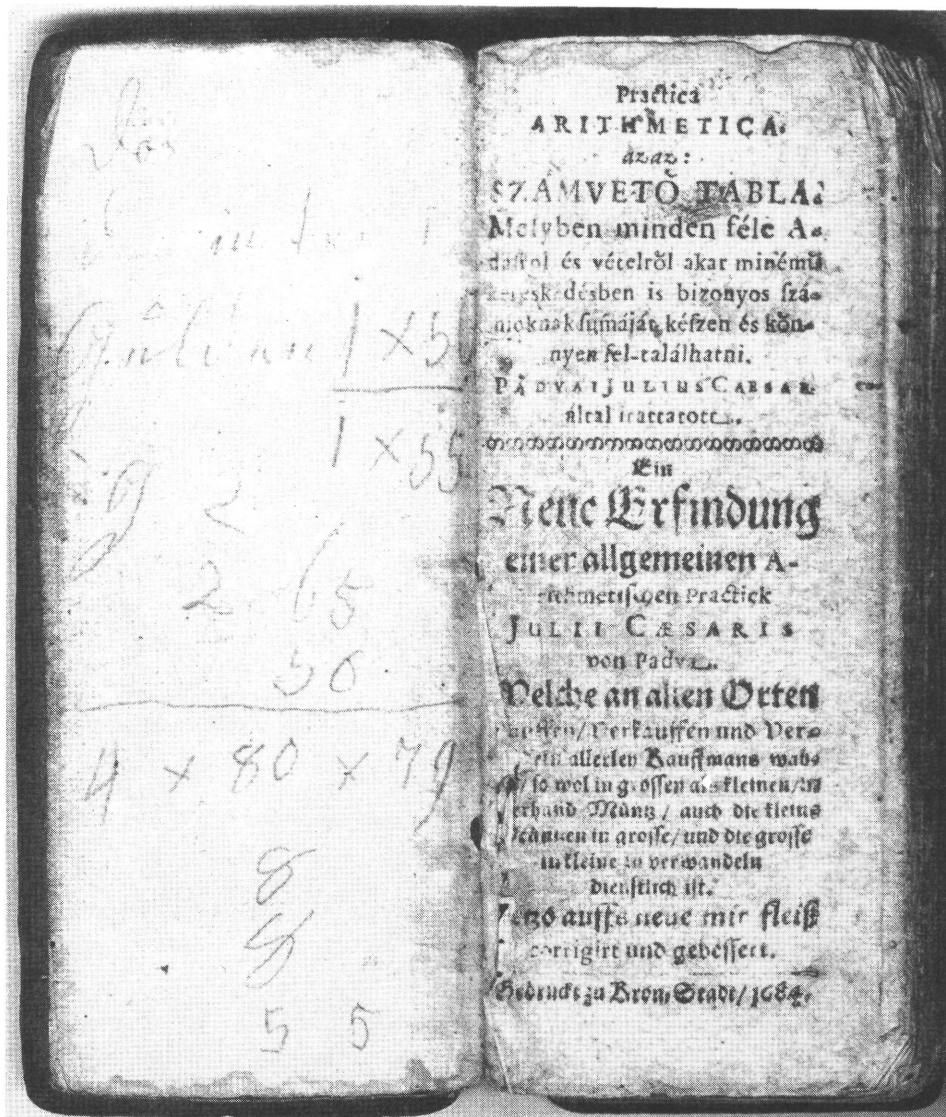 1 x 50
1 x 55
2
2 65
50
4 x 80 x 79
8
8
5 5
Practica
ARITHMETICA.
azaz:
SZÁMVETŐ TÁBLA.
Melyben minden féle A-
dásról és vételről akar minémű
kereskedésben is bizonyos szá-
moknak sumáját, készen és kőn-
nyen fel-találhatni.
PÁDVAI JULIUS CAESAR
által irattatott.
Ein
Neue Erfindung
einer allgemeinen A-
rithmetischen Practick
JULII CÆSARIS
von Padva.
Welche an allen Orten
kauffen / Verkauffen und Ver-
allerley Kauffmans wah-
/ so wol in grossen als kleinen / in
erhand Müntz / auch die kleine
Müntzen in grosse / und die grosse
in kleine zu verwandeln
dienstlich ist.
Jetzo auffs neue mit fleiß
corrigirt und gebessert.
Gedruckt zu Cron-Stadt / 1684.